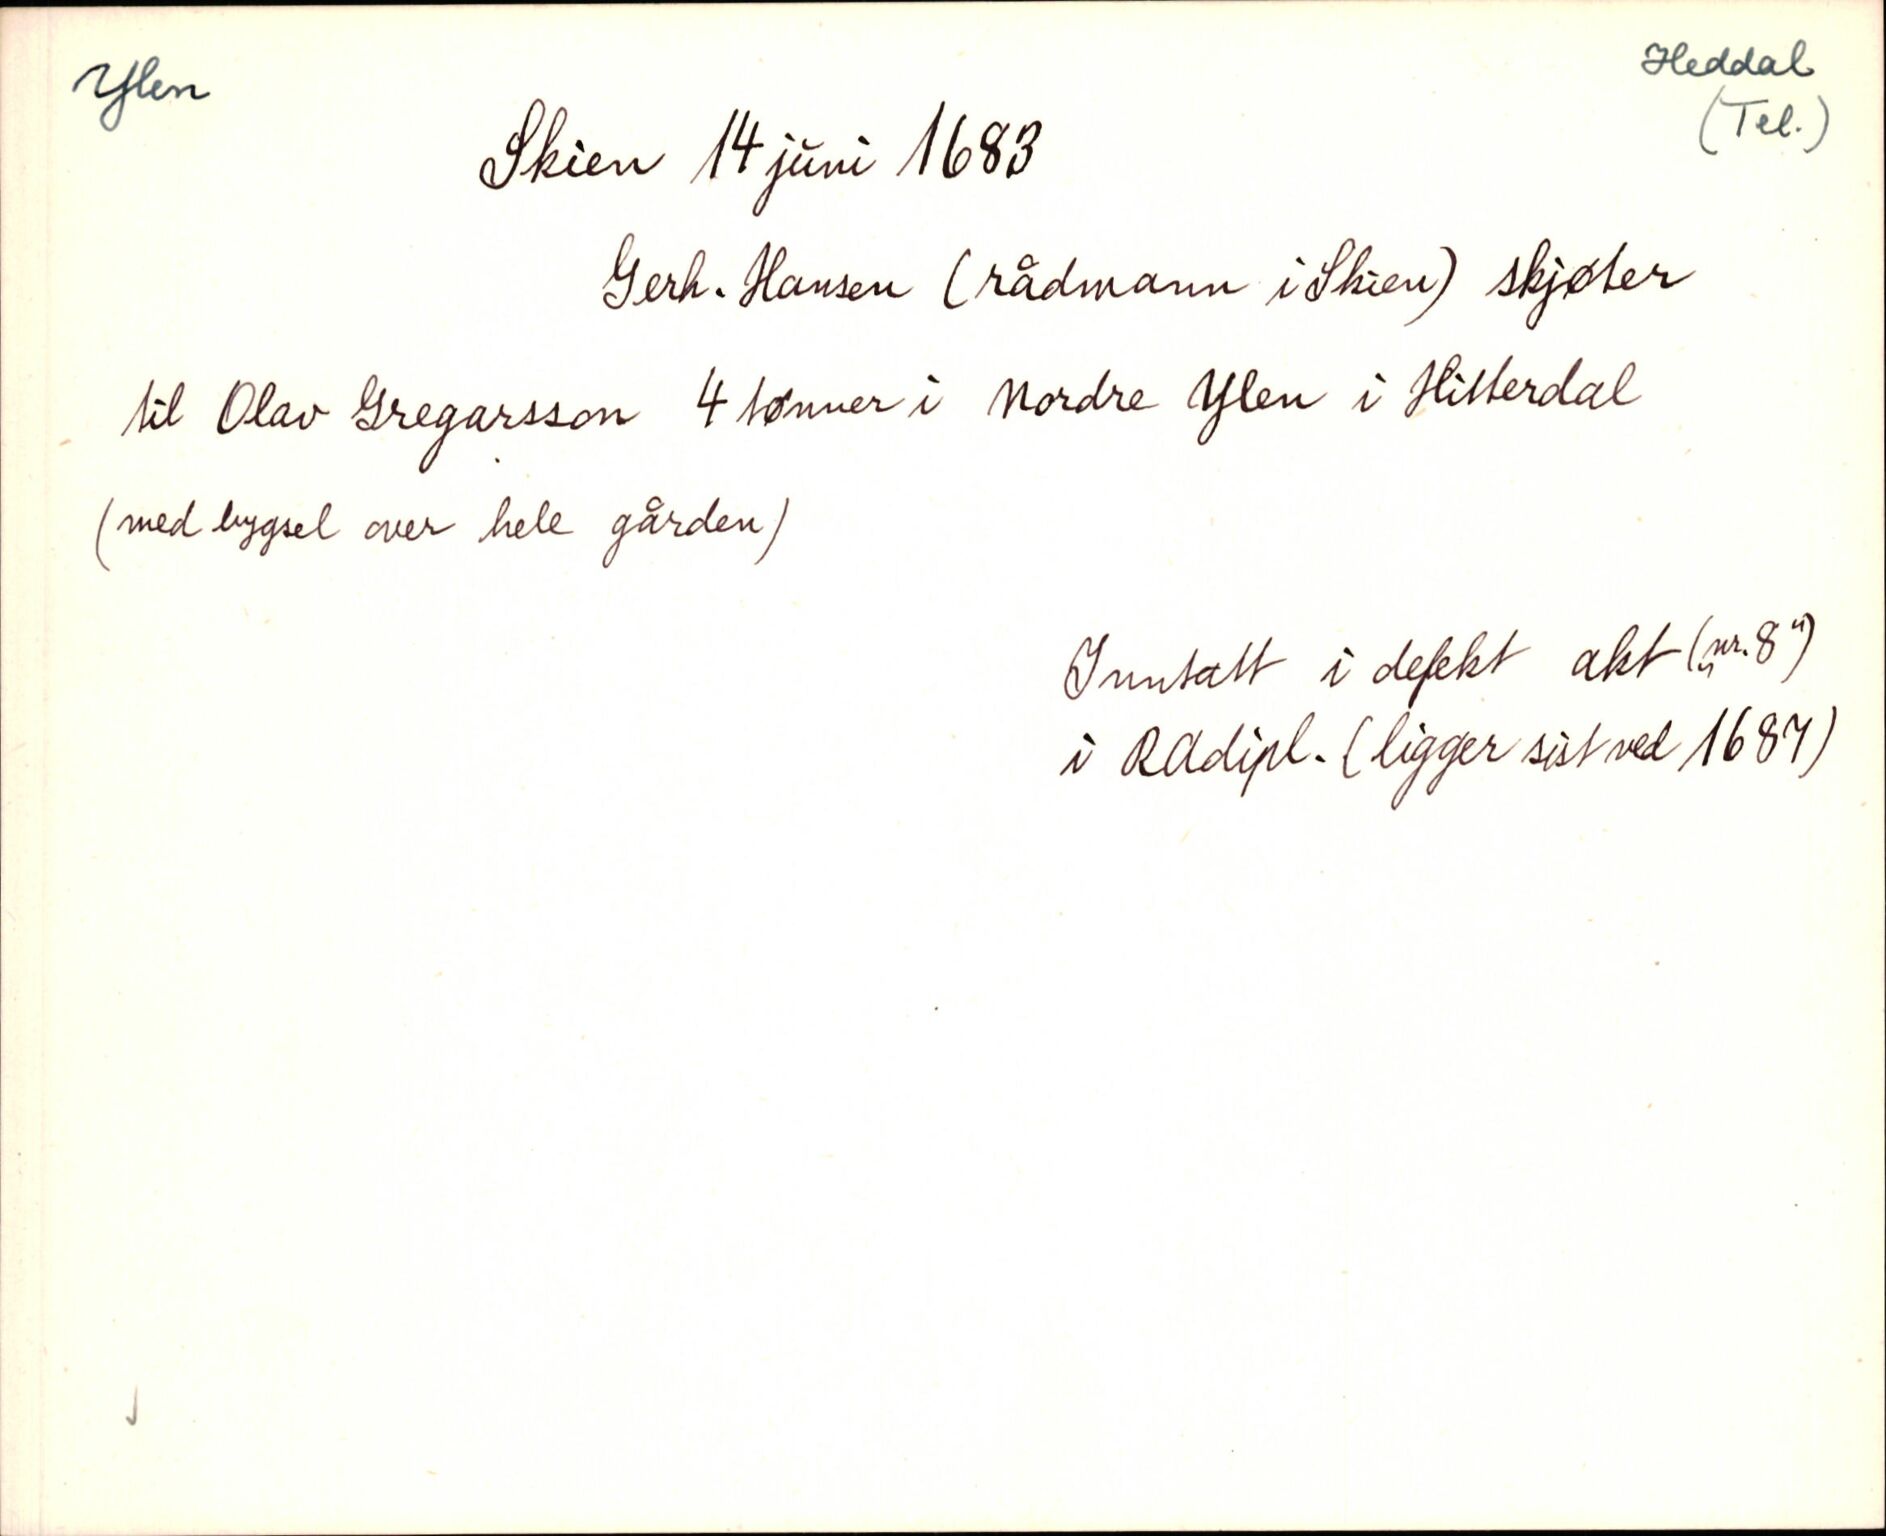 Ylen
Heddal
(Tel.)
Skien 14 juni 1683
Gerh. Hansen (rådmann i Skien) skjøter
til Olav Gregarsson 4 tønner i Nordre Ylen i Hitterdal
(med bygsel over hele gården)
Inntatt i defekt akt („nr. 8")
i RAdipl. (ligger sist ved 1687)